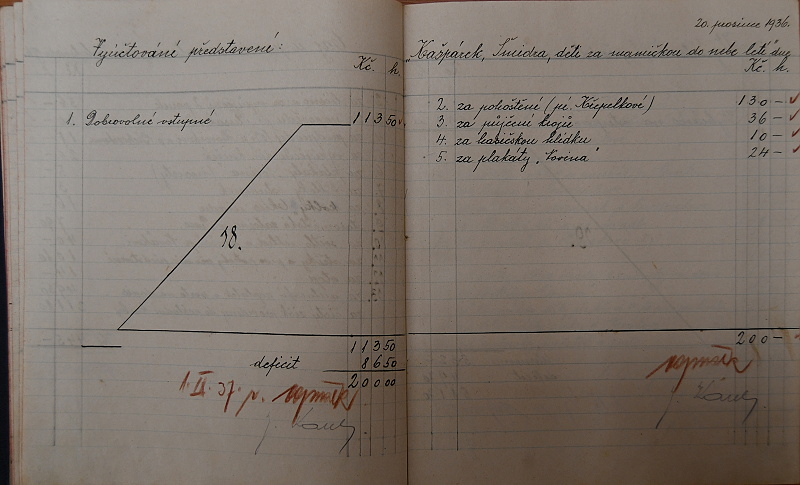 20. prosince 1936.
Vyúčtování představení: „Kašpárek, Šmidra, děti za maminkou do nebe letí" dne
Kč. h.
1. Dobrovolné vstupné 113 50
18.
113 50
deficit 86 50
200 00
Kč. h.
2. za pohoštění (pí. Křepelkové) 130 –
3. za půjčení krojů 36 –
4. za hasičskou hlídku 10 –
5. za plakáty „Novina" 24 –
200 –